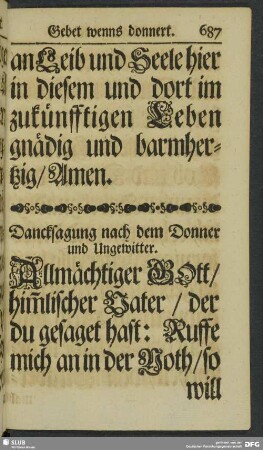 Gebet wenns donnert. 687
an Leib und Seele hier
in diesem und dort im
zukünfftigen Leben
gnädig und barmher-
tzig/ Amen.
Dancksagung nach dem Donner
und Ungewitter.
Allmächtiger GOtt/
him̃lischer Vater / der
du gesaget hast: Ruffe
mich an in der Noth/ so
will
SLUB